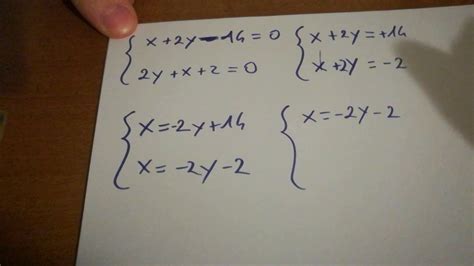 x+2y-14=0
2y+x+2=0
x+2y=+14
x+2y=-2
x=-2y+14
x=-2y-2
x=-2y-2